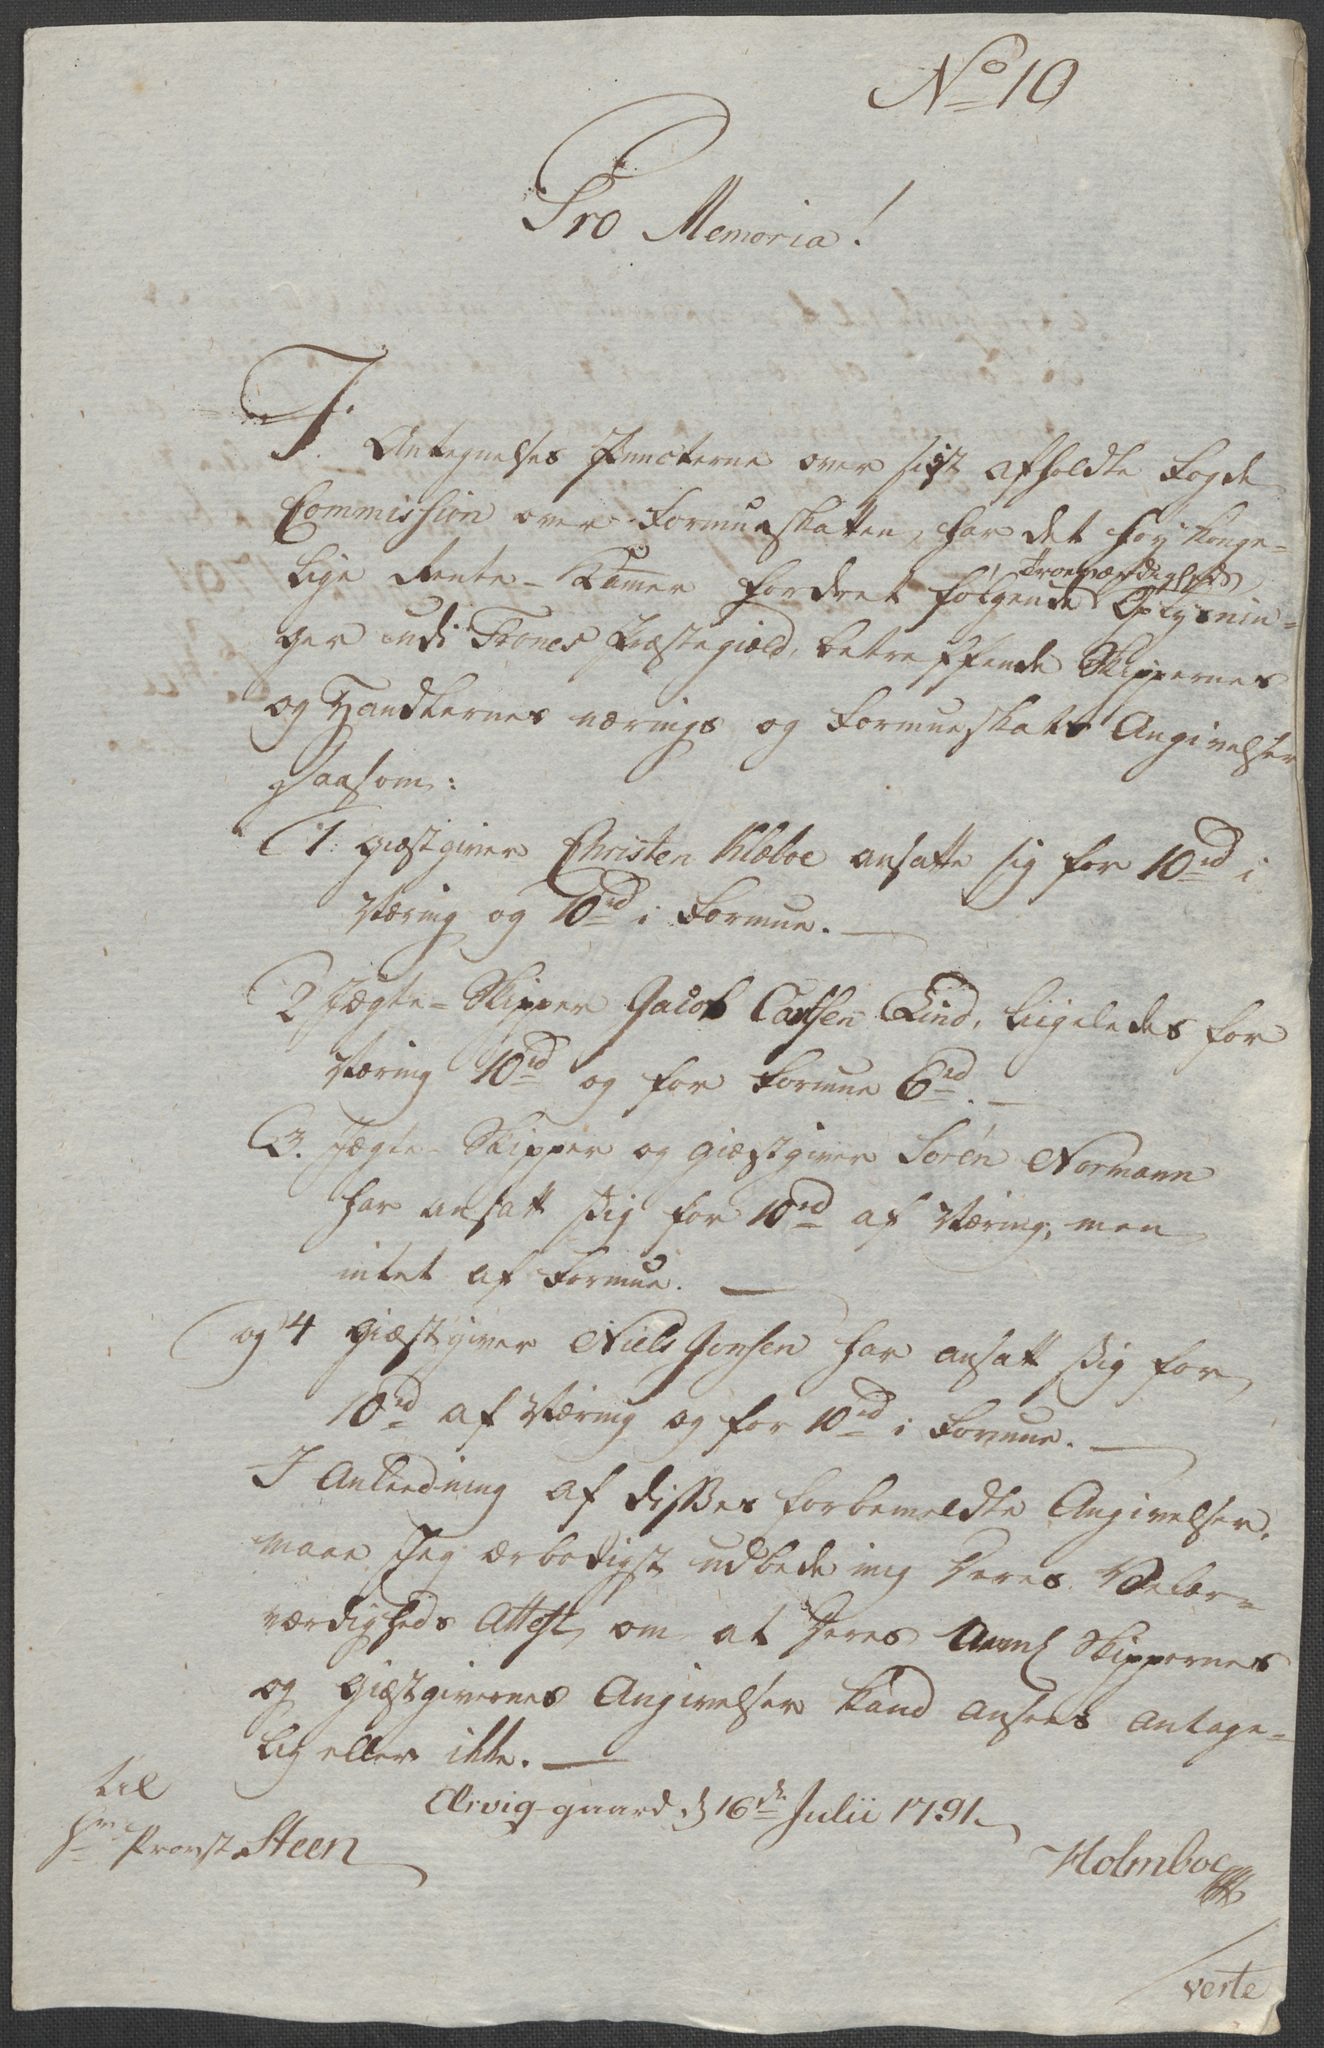 No 10
Pro Memoria!
I Antegnelses Puncterne over sist afholdte Fogde
Commission over Formueskatten, har det Høy Konge-
lige Rente-Kamer fordret følgende Troeværdigheds Oplysnin-
ger udi Trones Præstegield, betreffende Skippernes
og Handlernes nærings og Formueskats Angivelser
Saasom:
1. Giæstgiver Christen Klæboe ansatte sig for 10rd i
Næring og 10rd i Formue.
2 Jægte-Skipper Jacob Carlsen Lind, liigeledes for
Næring 10rd og for Formue 6rd.
3. Jægte-Skipper og Giæstgiver Sørén Normann
har ansatt sig for 10rd af Næring, men
intet af Formue.
og 4 Giæstgiver Niels Jonsen har ansatt sig for
10rd af Næring og for 10rd i Formue.
I Anleedning af disses forbemeldte Angivelser,
maae Jeg ærbødigst udbede mig Deres Velær-
værdigheds Attest, om at deres Skippernes
og Giæstgivernes Angivelser kand ansees Antage-
lig eller ikke.
Ærvig-gaard d 16de Julii 1791.
til
Hr Provst Steen
Holmboe
verte